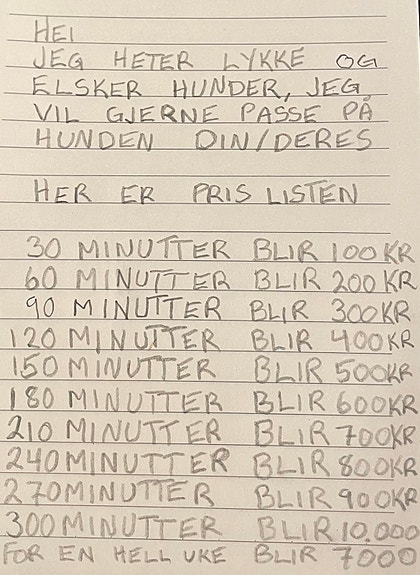 HEI
JEG HETER LYKKE OG
ELSKER HUNDER, JEG
VIL GJERNE PASSE PÅ
HUNDEN DIN/DERES
HER ER PRIS LISTEN
30 MINUTTER BLIR 100KR
60 MINUTTER BLIR 200KR
90 MINUTTER BLIR 300KR
120 MINUTTER BLIR 400KR
150 MINUTTER BLIR 500KR
180 MINUTTER BLIR 600KR
210 MINUTTER BLIR 700KR
240 MINUTTER BLIR 800KR
270 MINUTTER BLIR 900KR
300 MINUTTER BLIR 10.000
FOR EN HELL UKE BLIR 7000